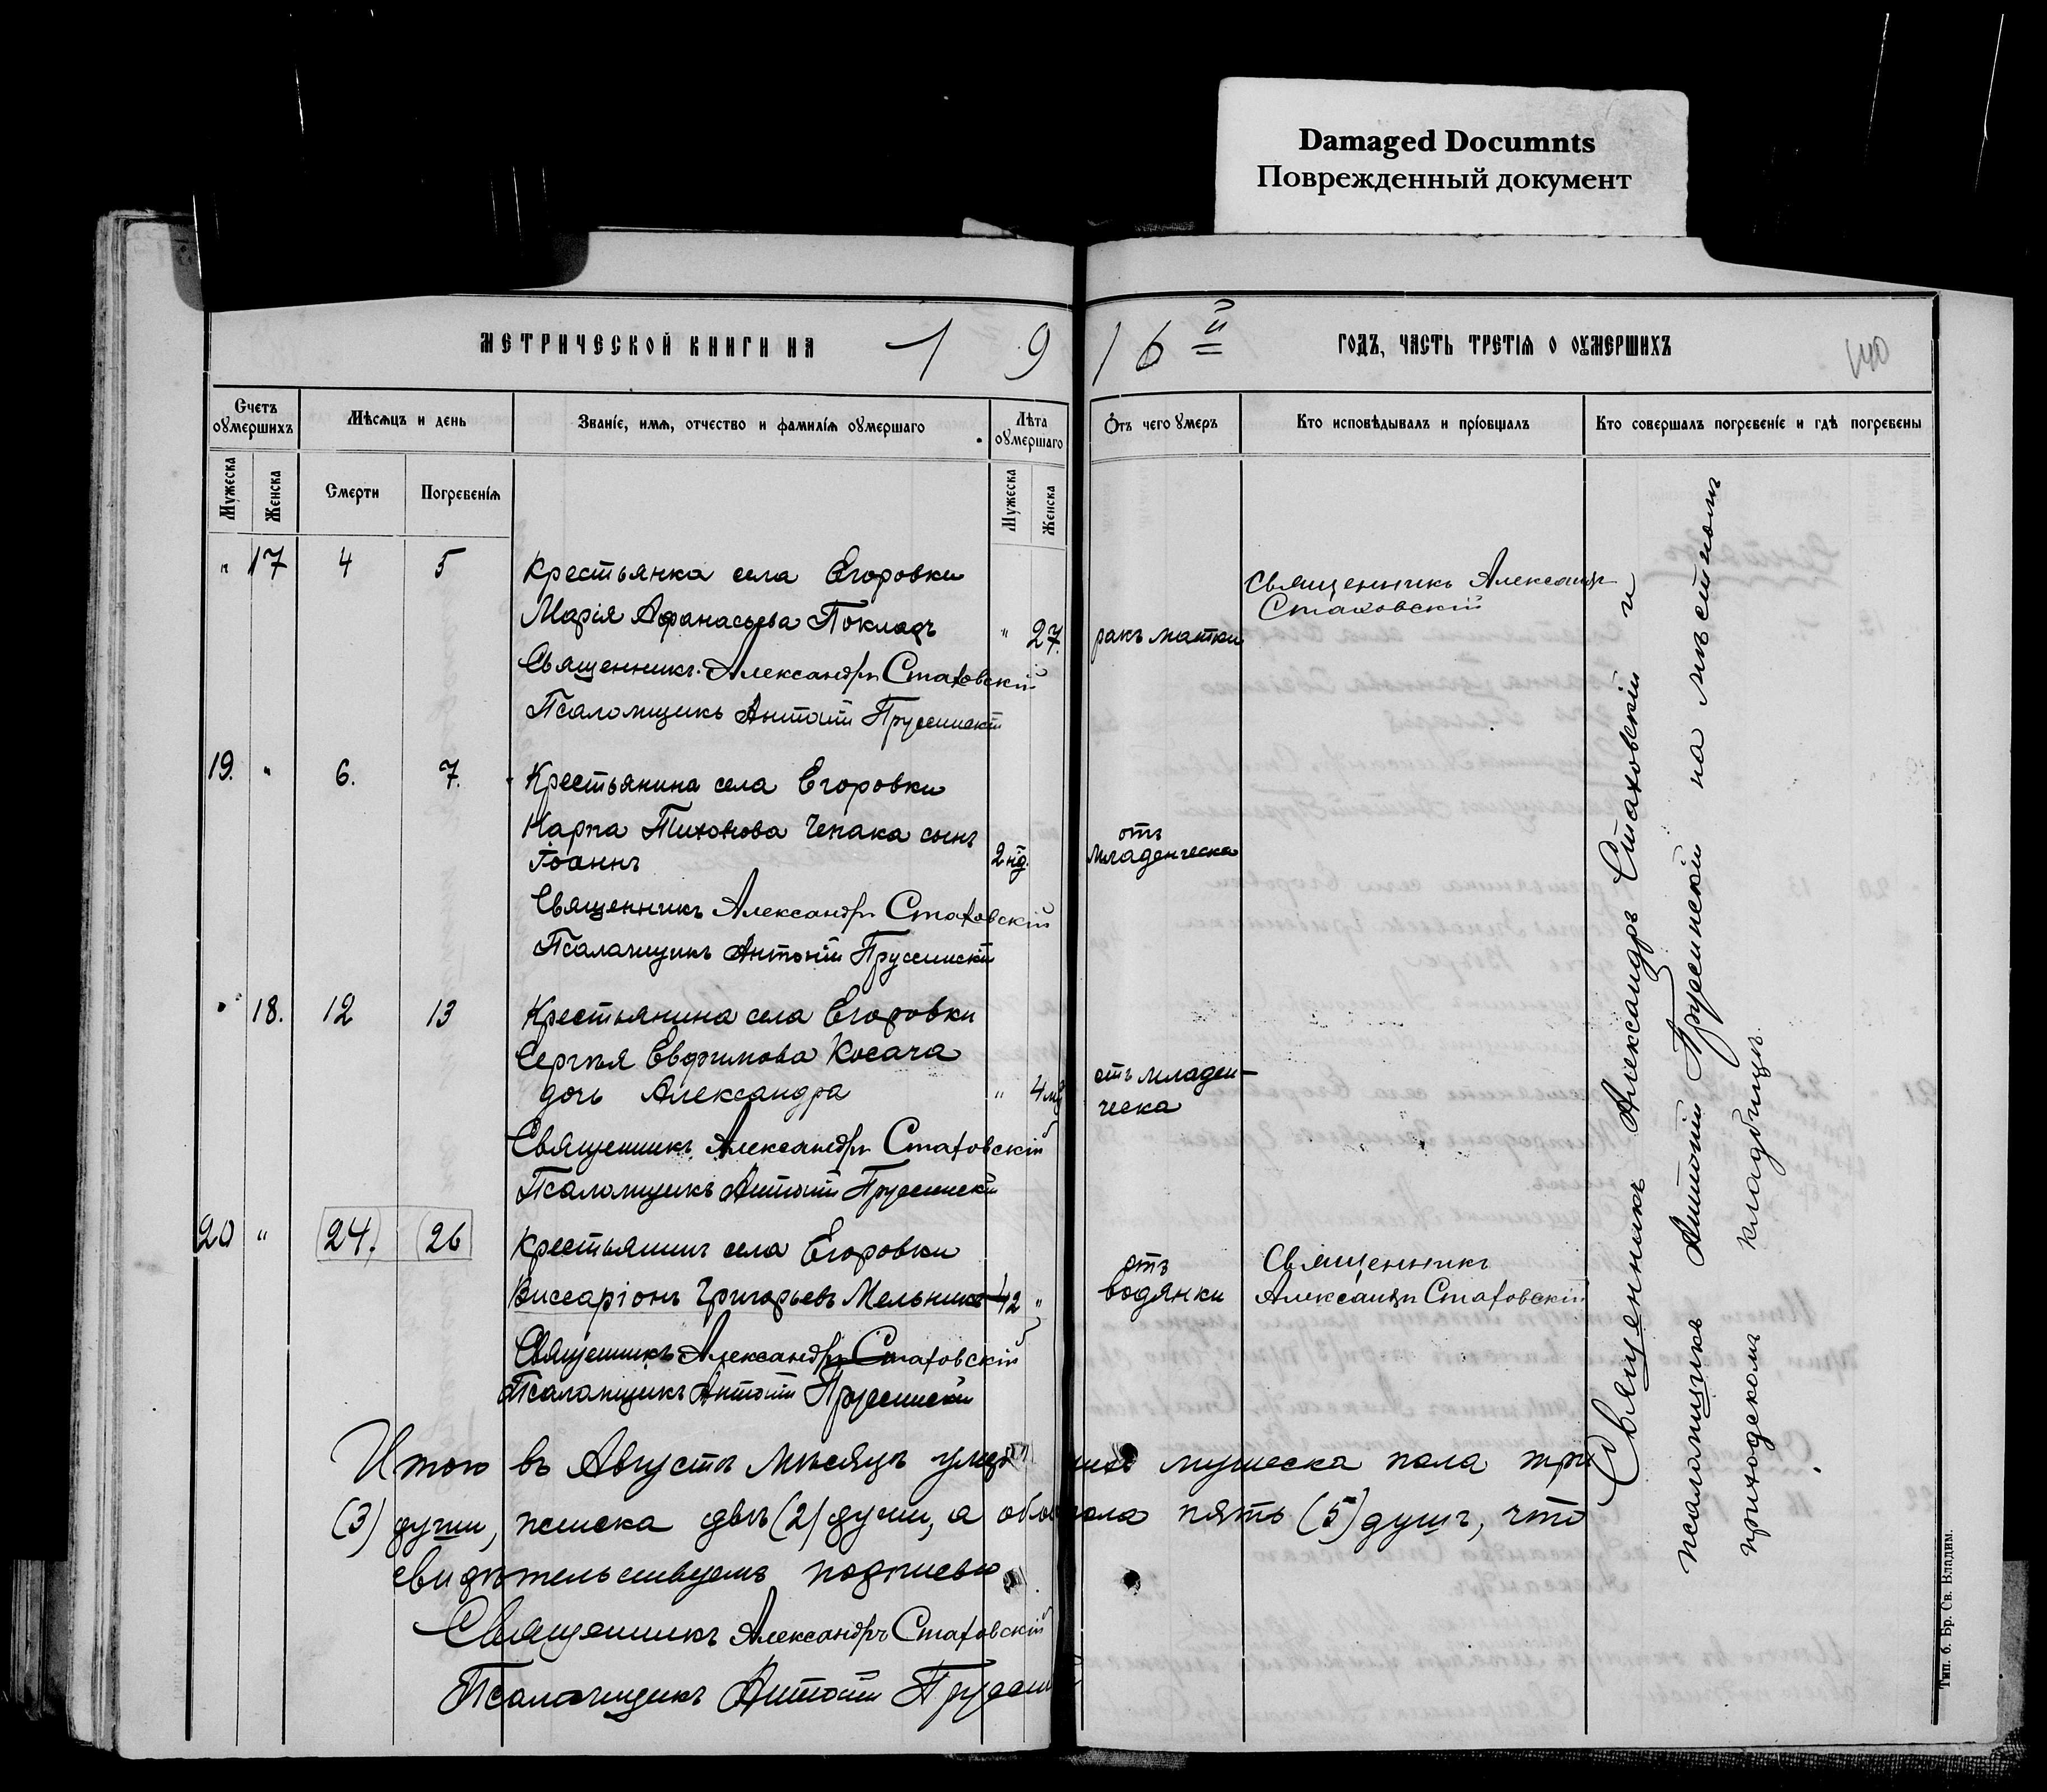 Damaged Documnts
Поврежденный документ
МЕТРИЧЕСКОЙ КНИГИ НА 19
16й ГОДЪ, ЧАСТЬ ТРЕТІЯ О ОУМЕРШИХЪ
140
Счетъ оумершихъ
Мѣсяцъ и день
Званіе, имя, отчество и фамилія оумершаго
Лѣта оумершаго
Отъ чего умеръ
Кто исповѣдывалъ и пріобщалъ
Кто совершалъ погребеніе и гдѣ погребены
Мужеска
Женска
Смерти
Погребенія
Мужеска
Женска
" 17 4 5 Крестьянка села Егоровки
Марія Афанасьева Покладъ " 27. ракъ матки
Священникъ Александръ
Стаховскій
Священникъ Александръ Стаховскій
Псаломщикъ Антоній Пруссинскій
19. " 6. 7. Крестьянина села Егоровки
Карпа Тихонова Чепака сынъ
Іоаннъ 2 нд.
отъ
младенческа
Священникъ Александръ Стаховскій
Псаломщикъ Антоній Пруссинскій
" 18. 12 13 Крестьянина села Егоровки
Сергѣя Евфимова Косача
дочь Александра " 4 м.
отъ младен-
ческа
Священникъ Александръ Стаховскій
Псаломщикъ Антоній Пруссинскій
20 " 24. 26 Крестьянинъ села Егоровки
Виссаріонъ Григорьевъ Мельникъ 42 "
отъ
водянки
Священникъ
Александръ Стаховскій
Священникъ Александръ Стаховскій
Псаломщикъ Антоній Пруссинскій
Священникъ Александръ Стаховскій и
псаломщикъ Антоній Пруссинскій на мѣстномъ
приходскомъ кладбищѣ
Итого въ Августѣ мѣсяцѣ умершихъ мужеска пола три
(3) души, женска двѣ (2) души, а обоего пола пять (5) душъ, что
свидѣтельствуемъ подписью
Священникъ Александръ Стаховскій
Псаломщикъ Антоній Пруссин
Тип. б. Бр. Св. Владим.